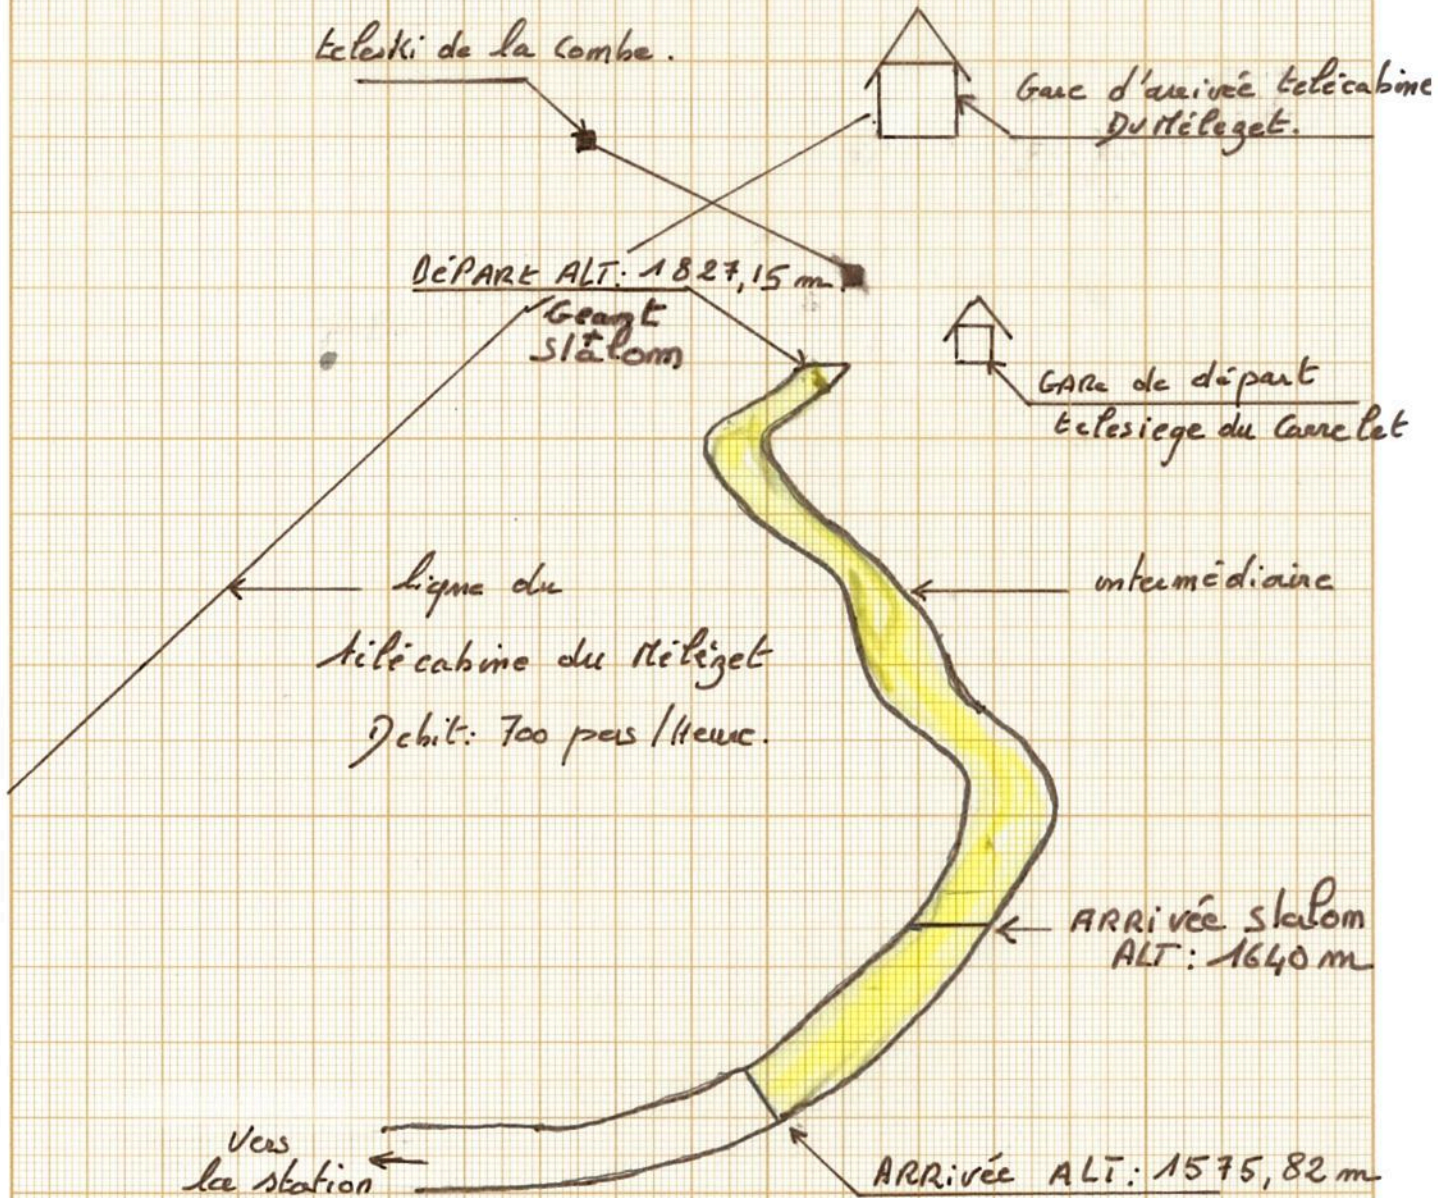 teleski de la Combe.
Gare d'arrivée telécabine
DU Méleget.
DéPART ALT: 1827,15 m
Geant
+
slalom
GARe de départ
telesiege du Carrelet
ligne du
télécabine du Méléget
Debit: 700 pers/Heure.
intermédiaire
ARRivée slalom
ALT: 1640 m
Vers
la station
ARRivée ALT: 1575,82 m